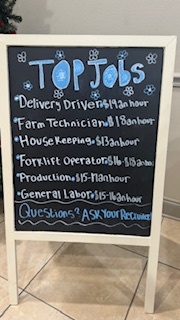 TOP JOBS
*Delivery Driver $19 an hour
*Farm Technician $18 an hour
*Housekeeping $13 an hour
*Forklift Operator $16-$18 an hour
*Production $15-17 an hour
*General Labor $15-16 an hour
Questions? ASK Your Recruiter